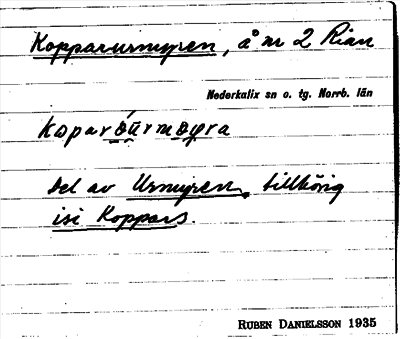 Kopparurmyren, å nr 2 Rian
Nederkalix sn o. tg. Norrb. län
Del av Urmyren, tillhörig
isi Koppars.
RUBEN DANIELSSON 1935